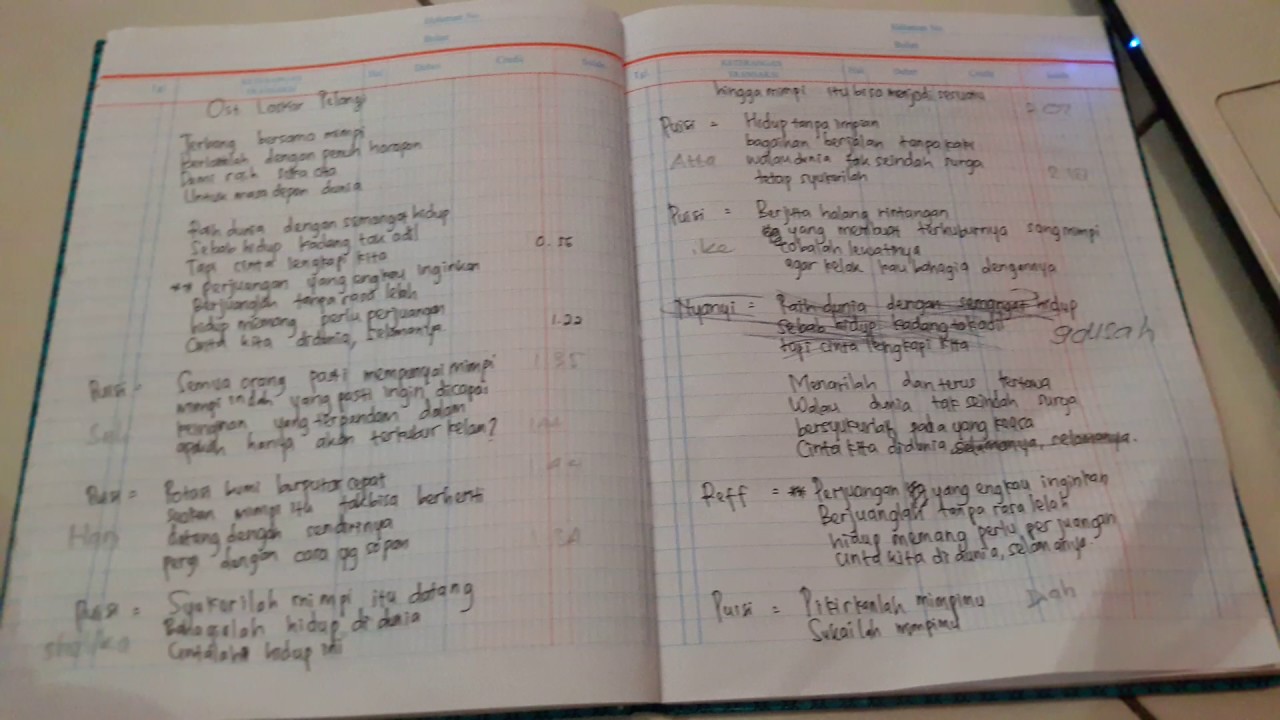 Halaman No
Bulan
Tgl KETERANGAN TRANSAKSI Hal Debet Credit Saldo
Ost Laskar Pelangi
Terbang bersama mimpi
Berlarilah dengan penuh harapan
rasa
Untuk masa depan dunia
Raih dunia dengan semangat hidup
Sebab hidup kadang tak adil 0.56
Tapi cinta lengkapi kita
** perjuangan yang engkau inginkan
Berjuanglah tanpa rasa lelah
hidup memang perlu perjuangan 1.22
Cinta kita didunia, selamanya.
Puisi = Semua orang pasti mempunyai mimpi 1.35
mimpi indah yang pasti ingin dicapai
keinginan yang terpendam dalam
apakah hanya akan terkubur kelam?
Puisi = Rotasi bumi berputar cepat
seakan mimpi itu takbisa berhenti
datang dengan sendirinya
pergi dengan cara yg sopan
Puisi = Syukurilah mimpi itu datang
Bahagialah hidup di dunia
Cintailah hidup ini
Halaman No
Bulan
Tgl KETERANGAN TRANSAKSI Hal Debet Credit Saldo
hingga mimpi itu bisa menjadi sesuatu 2.07
Puisi = Hidup tanpa impian
bagaikan berjalan tanpa kaki
Atta walau dunia tak seindah surga
tetap syukurilah
Puisi = Berjuta halang rintangan
yang membuat terkuburnya sang mimpi
cobalah lewatnya
agar kelak kau bahagia dengannya
Nyanyi = Raih dunia dengan semangat hidup
sebab hidup kadang tak adil gausah
tapi cinta lengkapi kita
Menarilah dan terus tertawa
Walau dunia tak seindah surga
bersyukurlah pada yang kuasa
Cinta kita didunia selamanya, selamanya.
Reff = ** Perjuangan yang engkau inginkan
Berjuanglah tanpa rasa lelah
hidup memang perlu perjuangan
cinta kita di dunia, selamanya.
Puisi = Pikirkanlah mimpimu
Sukailah mimpimu